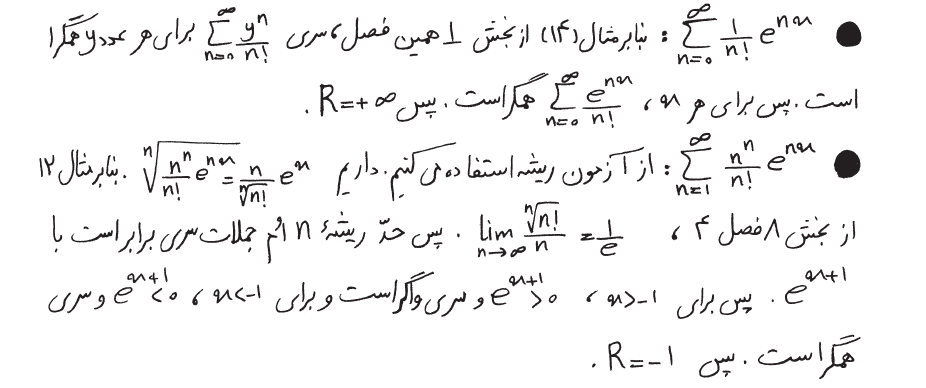 ● $\sum_{n=0}^{\infty} \frac{1}{n!} e^{nx}$ : بنابر مثال (۱۴) از بخش ۱ همین فصل، سری $\sum_{n=0}^{\infty} \frac{y^n}{n!}$ برای هر عدد y همگرا
است. پس برای هر x، $\sum_{n=0}^{\infty} \frac{e^{nx}}{n!}$ همگراست. پس $R=+\infty$.
● $\sum_{n=1}^{\infty} \frac{n^n}{n!} e^{nx}$ : از آزمون ریشه استفاده می‌کنیم. داریم $\sqrt[n]{\frac{n^n}{n!} e^{nx}} = \frac{n}{\sqrt[n]{n!}} e^x$. بنابر مثال ۱۲
از بخش ۸ فصل ۴، $\lim_{n\to\infty} \frac{\sqrt[n]{n!}}{n} = \frac{1}{e}$. پس حدّ ریشهٔ n اُم جملات سری برابر است با
$e^{x+1}$. پس برای $x>-1$، $e^{x+1}>0$ و سری واگراست و برای $x<-1$، $e^{x+1}<0$ و سری
همگراست. پس $R=-1$.